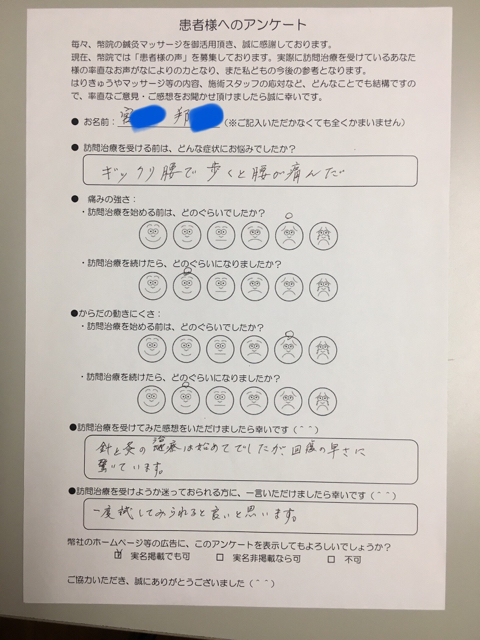 患者様へのアンケート
毎々、幣院の鍼灸マッサージを御活用頂き、誠に感謝しております。
現在、幣院では「患者様の声」を募集しております。実際に訪問治療を受けているあなた
様の率直なお声がなによりの力となり、また私どもの今後の参考となります。
はりきゅうやマッサージ等の内容、施術スタッフの応対など、どんなことでも結構ですの
で、率直なご意見・ご感想をお聞かせ頂けましたら誠に幸いです。
● お名前: (※ご記入いただかなくても全くかまいません)
● 訪問治療を受ける前は、どんな症状にお悩みでしたか?
ギックリ腰で歩くと腰が痛んだ
● 痛みの強さ:
・訪問治療を始める前は、どのぐらいでしたか?
・訪問治療を続けたら、どのぐらいになりましたか?
●からだの動きにくさ:
・訪問治療を始める前は、どのぐらいでしたか?
・訪問治療を続けたら、どのぐらいになりましたか?
●訪問治療を受けてみた感想をいただけましたら幸いです(^^)
針と灸の治療は始めてでしたが、回復の早さに
驚いています。
●訪問治療を受けようか迷っておられる方に、一言いただけましたら幸いです(^^)
一度試してみられると良いと思います。
幣社のホームページ等の広告に、このアンケートを表示してもよろしいでしょうか?
☑ 実名掲載でも可 □ 実名非掲載なら可 □ 不可
ご協力いただき、誠にありがとうございました(^^)